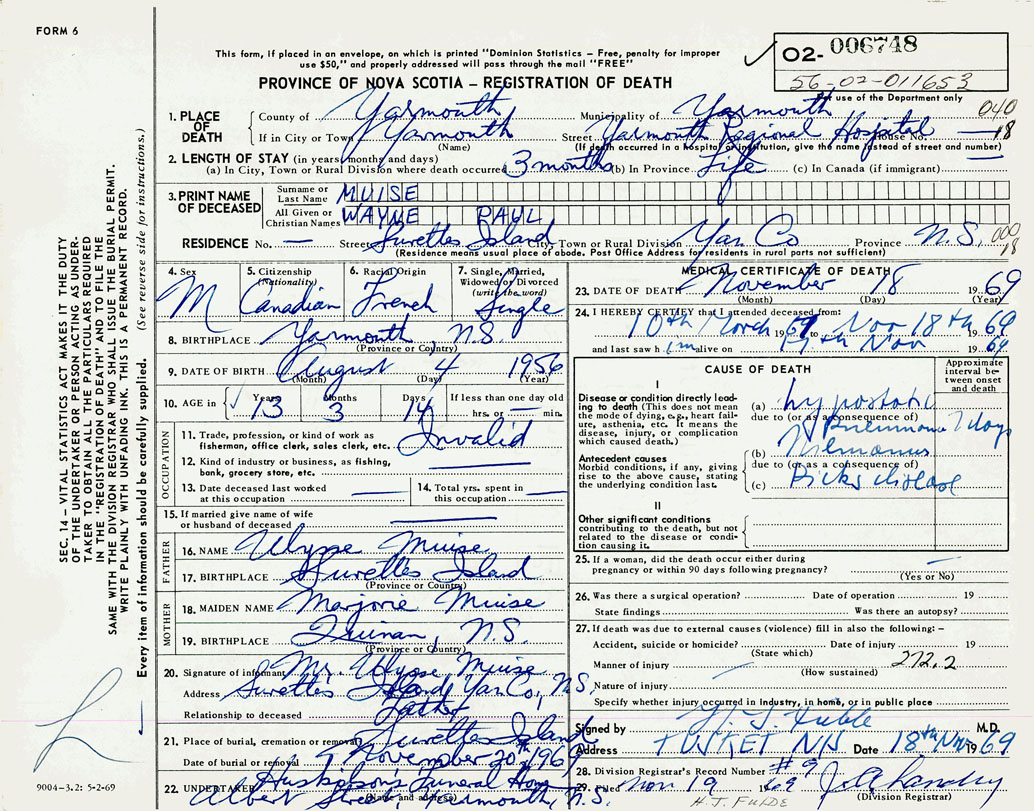 FORM 6
This form, if placed in an envelope, on which is printed "Dominion Statistics – Free, penalty for improper
use $50," and properly addressed will pass through the mail "FREE"
PROVINCE OF NOVA SCOTIA – REGISTRATION OF DEATH
02- 006748
56-02-011653
For use of the Department only
040
18
1. PLACE OF DEATH County of Yarmouth Municipality of Yarmouth
If in City or Town Yarmouth Street Yarmouth Regional Hospital House No. —
(Name) (If death occurred in a hospital or institution, give the name instead of street and number)
2. LENGTH OF STAY (in years, months and days)
(a) In City, Town or Rural Division where death occurred 3 months (b) In Province Life (c) In Canada (if immigrant) —
3. PRINT NAME OF DECEASED Surname or Last Name MUISE
All Given or Christian Names WAYNE PAUL
RESIDENCE No. — Street Surettes Island City, Town or Rural Division Yar Co Province N.S. 000 18
(Residence means usual place of abode. Post Office Address for residents in rural parts not sufficient)
4. Sex M
5. Citizenship (Nationality) Canadian
6. Racial Origin French
7. Single, Married, Widowed or Divorced (write the word) Single
8. BIRTHPLACE Yarmouth N.S.
(Province or Country)
9. DATE OF BIRTH August 4 1956
(Month) (Day) (Year)
10. AGE in Years 13 Months 3 Days 14 If less than one day old hrs. or — min.
OCCUPATION
11. Trade, profession, or kind of work as fisherman, office clerk, sales clerk, etc. Invalid
12. Kind of industry or business, as fishing, bank, grocery store, etc. —
13. Date deceased last worked at this occupation —
14. Total yrs. spent in this occupation —
15. If married give name of wife or husband of deceased —
FATHER
16. NAME Ulysse Muise
17. BIRTHPLACE Surettes Island
(Province or Country)
MOTHER
18. MAIDEN NAME Marjorie Muise
19. BIRTHPLACE Quinan, N.S.
(Province or Country)
20. Signature of informant Mr. Ulysse Muise
Address Surettes Island, Yar Co., N.S.
Relationship to deceased Father
21. Place of burial, cremation or removal Surettes Island
Date of burial or removal November 20th 1969
22. UNDERTAKER Funeral Home
Albert Street Yarmouth, N.S.
(Name and address)
MEDICAL CERTIFICATE OF DEATH
23. DATE OF DEATH November 18 1969
(Month) (Day) (Year)
24. I HEREBY CERTIFY that I attended deceased from:
10th March 1969 to Nov 18th 1969
and last saw him alive on 17th Nov 1969
CAUSE OF DEATH
Approximate interval between onset and death
I
Disease or condition directly leading to death (This does not mean the mode of dying, e.g., heart failure, asthenia, etc. It means the disease, injury, or complication which caused death.)
(a) hypostatic
due to (or as a consequence of) Pneumonia 7 days
Antecedent causes
Morbid conditions, if any, giving rise to the above cause, stating the underlying condition last.
(b)
due to (or as a consequence of)
(c) Picks disease
II
Other significant conditions contributing to the death, but not related to the disease or condition causing it.
25. If a woman, did the death occur either during pregnancy or within 90 days following pregnancy? —
(Yes or No)
26. Was there a surgical operation? Date of operation 19
State findings Was there an autopsy?
27. If death was due to external causes (violence) fill in also the following: –
Accident, suicide or homicide? Date of injury 19
(State which)
Manner of injury 272.2
(How sustained)
Nature of injury
Specify whether injury occurred in industry, in home, or in public place
Signed by H. J. Fulde M.D.
Address TUSKET N/S Date 18th Nov 1969
28. Division Registrar's Record Number #9
29. Filed Nov 19 1969 J. A. Landry
H. J. FULDE (Division Registrar)
SEC. 14 – VITAL STATISTICS ACT MAKES IT THE DUTY
OF THE UNDERTAKER OR PERSON ACTING AS UNDER-
TAKER TO OBTAIN ALL THE PARTICULARS REQUIRED
IN THE "REGISTRATION OF DEATH" AND TO FILE THE
SAME WITH THE DIVISION REGISTRAR WHO SHALL ISSUE THE BURIAL PERMIT.
WRITE PLAINLY WITH UNFADING INK. THIS IS A PERMANENT RECORD.
Every item of information should be carefully supplied. (See reverse side for instructions.)
9004–3.2: 5-2-69